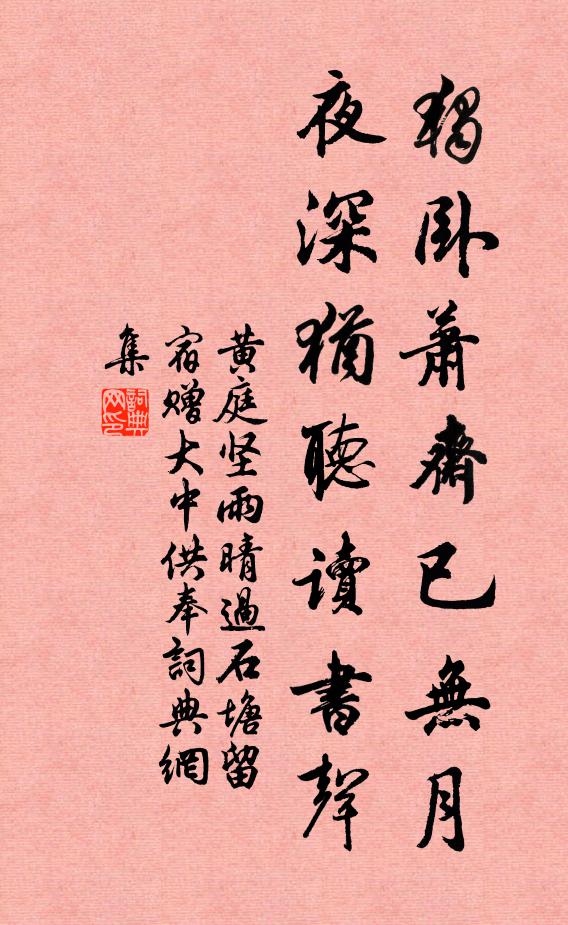 獨卧蕭齋已無月
夜深猶聽讀書聲
黄庭坚雨晴過石塘留
宿贈大中供奉詞典網
集
詞典网印